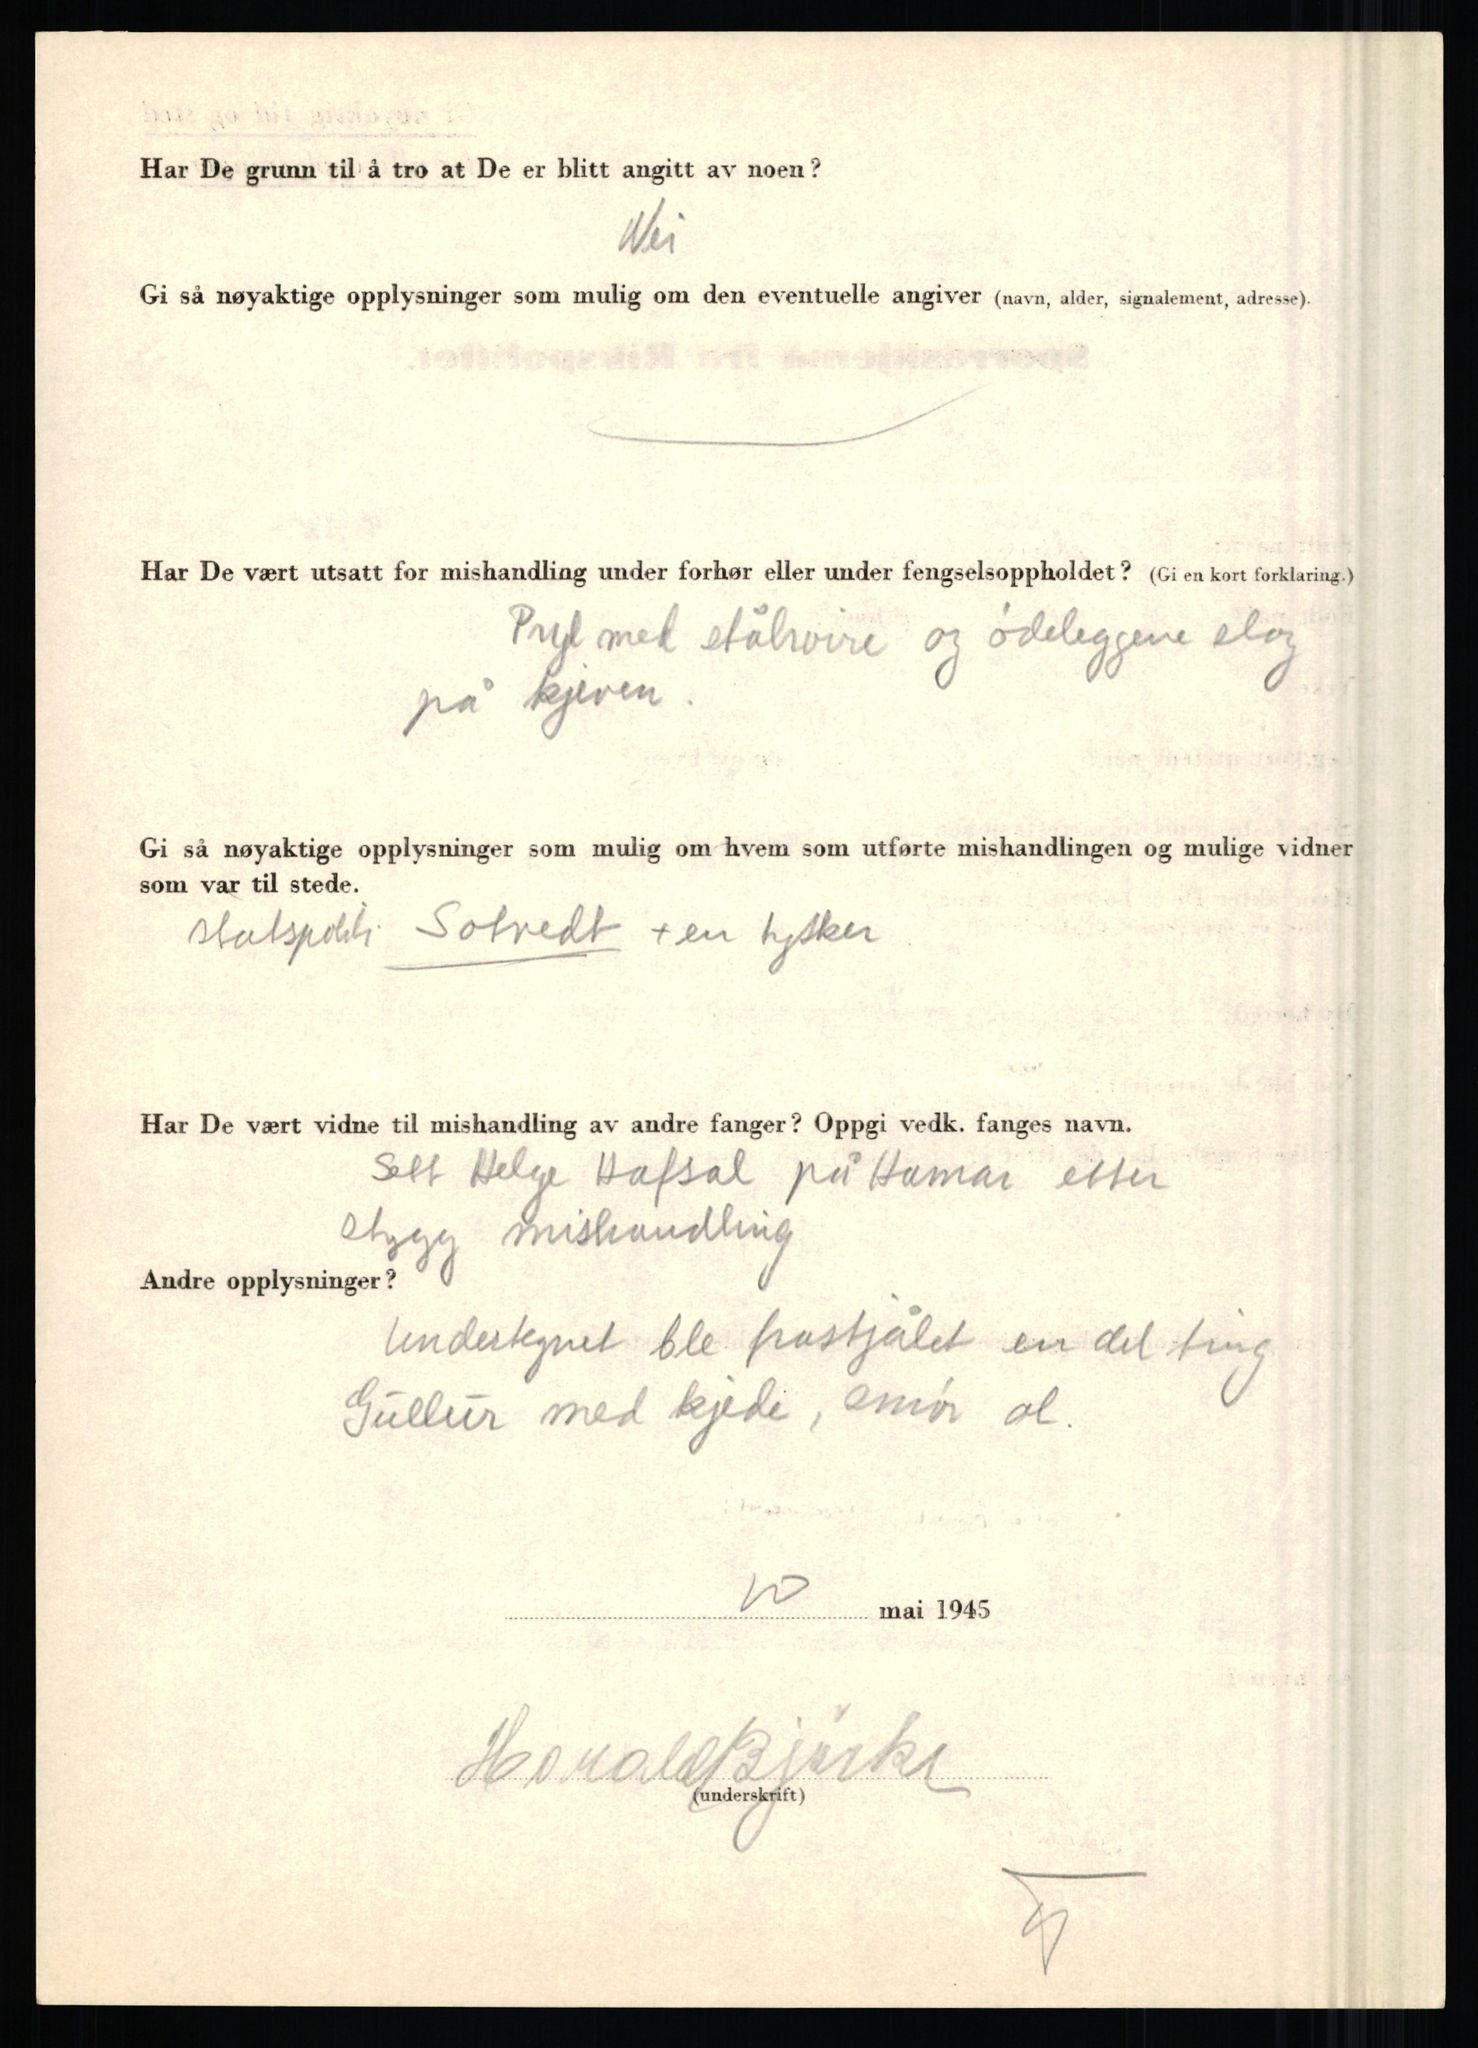 Har De grunn til å tro at De er blitt angitt av noen?
Nei
Gi så nøyaktige opplysninger som mulig om den eventuelle angiver (navn, alder, signalement, adresse).
Har De vært utsatt for mishandling under forhør eller under fengselsoppholdet? (Gi en kort forklaring.)
Pryl med stålwire og ödeleggene slag
på kjeven.
Gi så nøyaktige opplysninger som mulig om hvem som utførte mishandlingen og mulige vidner
som var til stede.
statspoliti Solvedt + en tysker
Har De vært vidne til mishandling av andre fanger? Oppgi vedk. fanges navn.
Sett Helge Hafsal på Hamar etter
stygg mishandling
Andre opplysninger?
Undertegnet ble frastjålet en del ting
Gullur med kjede, smör ol.
10 mai 1945
Harald Björke
(underskrift)